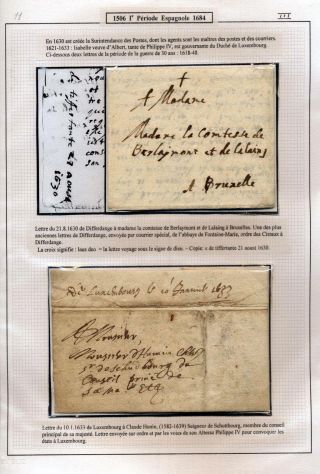 11
1506 Iº Période Espagnole 1684
III
En 1630 est créée la Surintendance des Postes, dont les agents sont les maîtres des postes et des courriers.
1621-1633 : Isabelle veuve d'Albert, tante de Philippe IV, est gouvernante du Duché de Luxembourg.
Ci-dessous deux lettres de la période de la guerre de 30 ans : 1618-48.
A Madame
Madame la Comtesse de
Berlaymont et de Lalaing
A Bruxelle
1630
Lettre du 21.8.1630 de Differdange à madame la comtesse de Berlaymont et de Lalaing à Bruxelles. Une des plus
anciennes lettres de Differdange, envoyée par courrier spécial, de l'abbaye de Fontaine-Marie, ordre des Citeaux à
Differdange.
La croix signifie : laus deo = la lettre voyage sous le signe de dieu. - Copie: « de tiffertante 21 aoust 1630.
De Luxembourg le 10 Janvier 1633
A Monsieur
Monsieur
Conseil privé de
Sa Ma
Lettre du 10.1.1633 de Luxembourg à Claude Humin, (1582-1639) Seigneur de Schottbourg, membre du conseil
principal de sa majesté. Lettre envoyée sur ordre et par les voies de son Altesse Philippe IV pour convoquer les
états à Luxembourg.